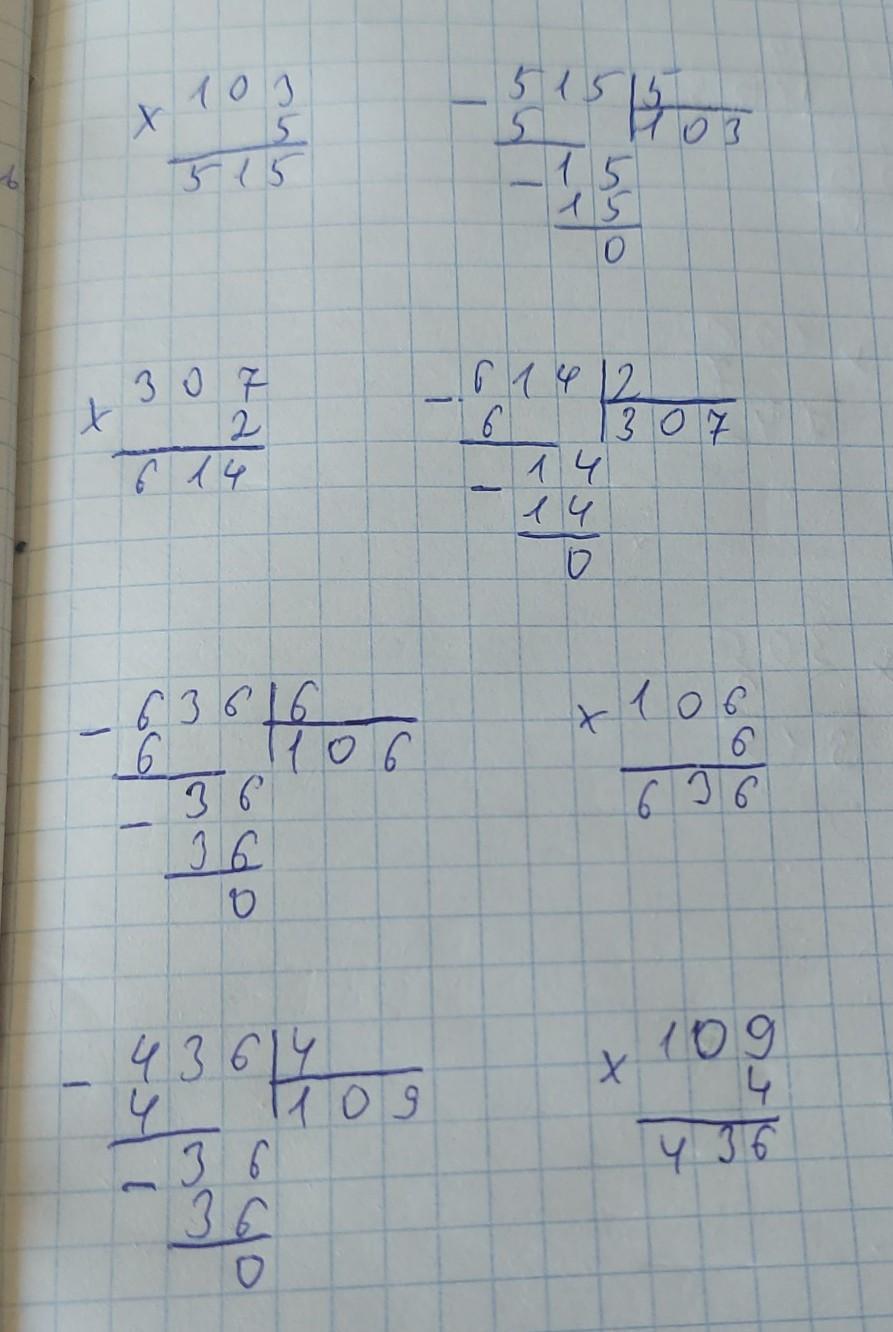 × 103    - 515 | 5
5    5    103
515    - 15
15
0
× 307    - 614 | 2
2    6    307
614    - 14
14
0
- 636 | 6    × 106
6    106    6
- 36    636
36
0
- 436 | 4    × 109
4    109    4
- 36    436
36
0